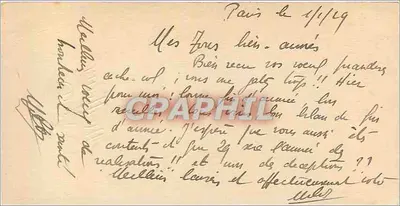 Paris le 1/1/29
Mes Très bien-aimés
Bien reçu vos voeux, grandes
cache-col, vous me gatez trop!! Hier
pour moi, bonne fin d'année
résultats, bon bilan de fin
d'année. J'espère que vous aussi êtes
contents et que 29 sera l'année des
réalisations!! et non des déceptions??
Meilleurs baisers et affectueusement votre
Meilleurs voeux de
bonheur et santé
CPAPHIL.COM